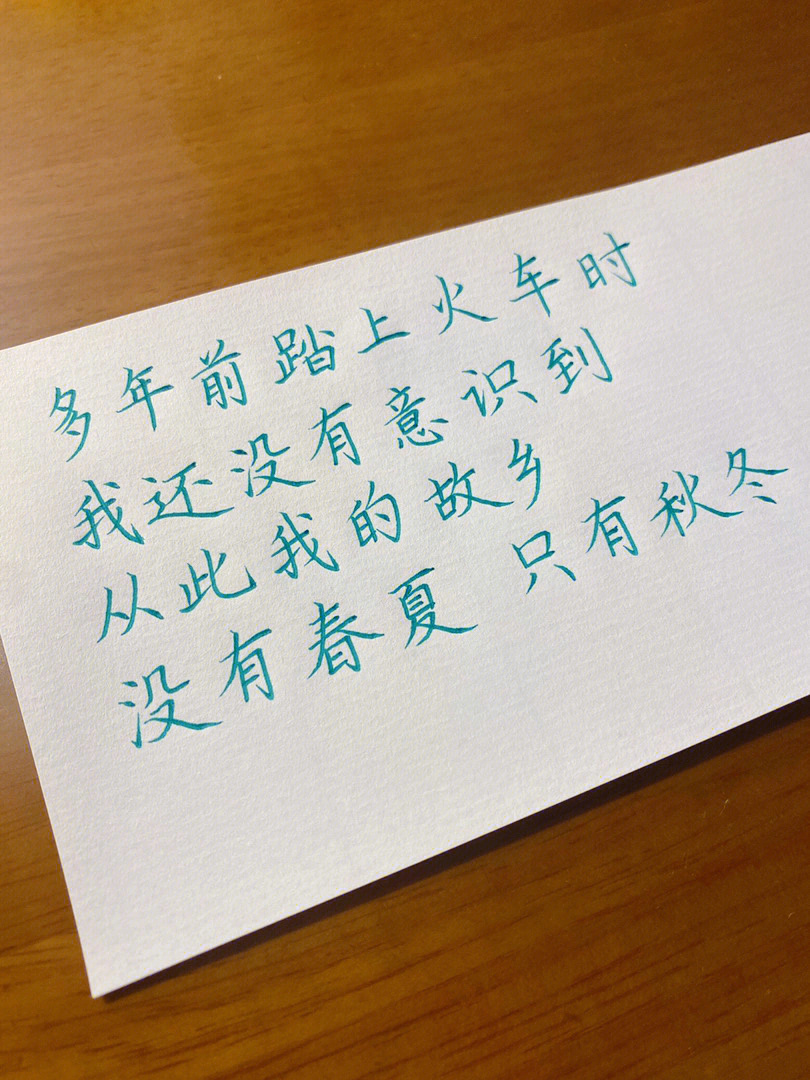 多年前踏上火车时
我还没有意识到
从此我的故乡
没有春夏 只有秋冬